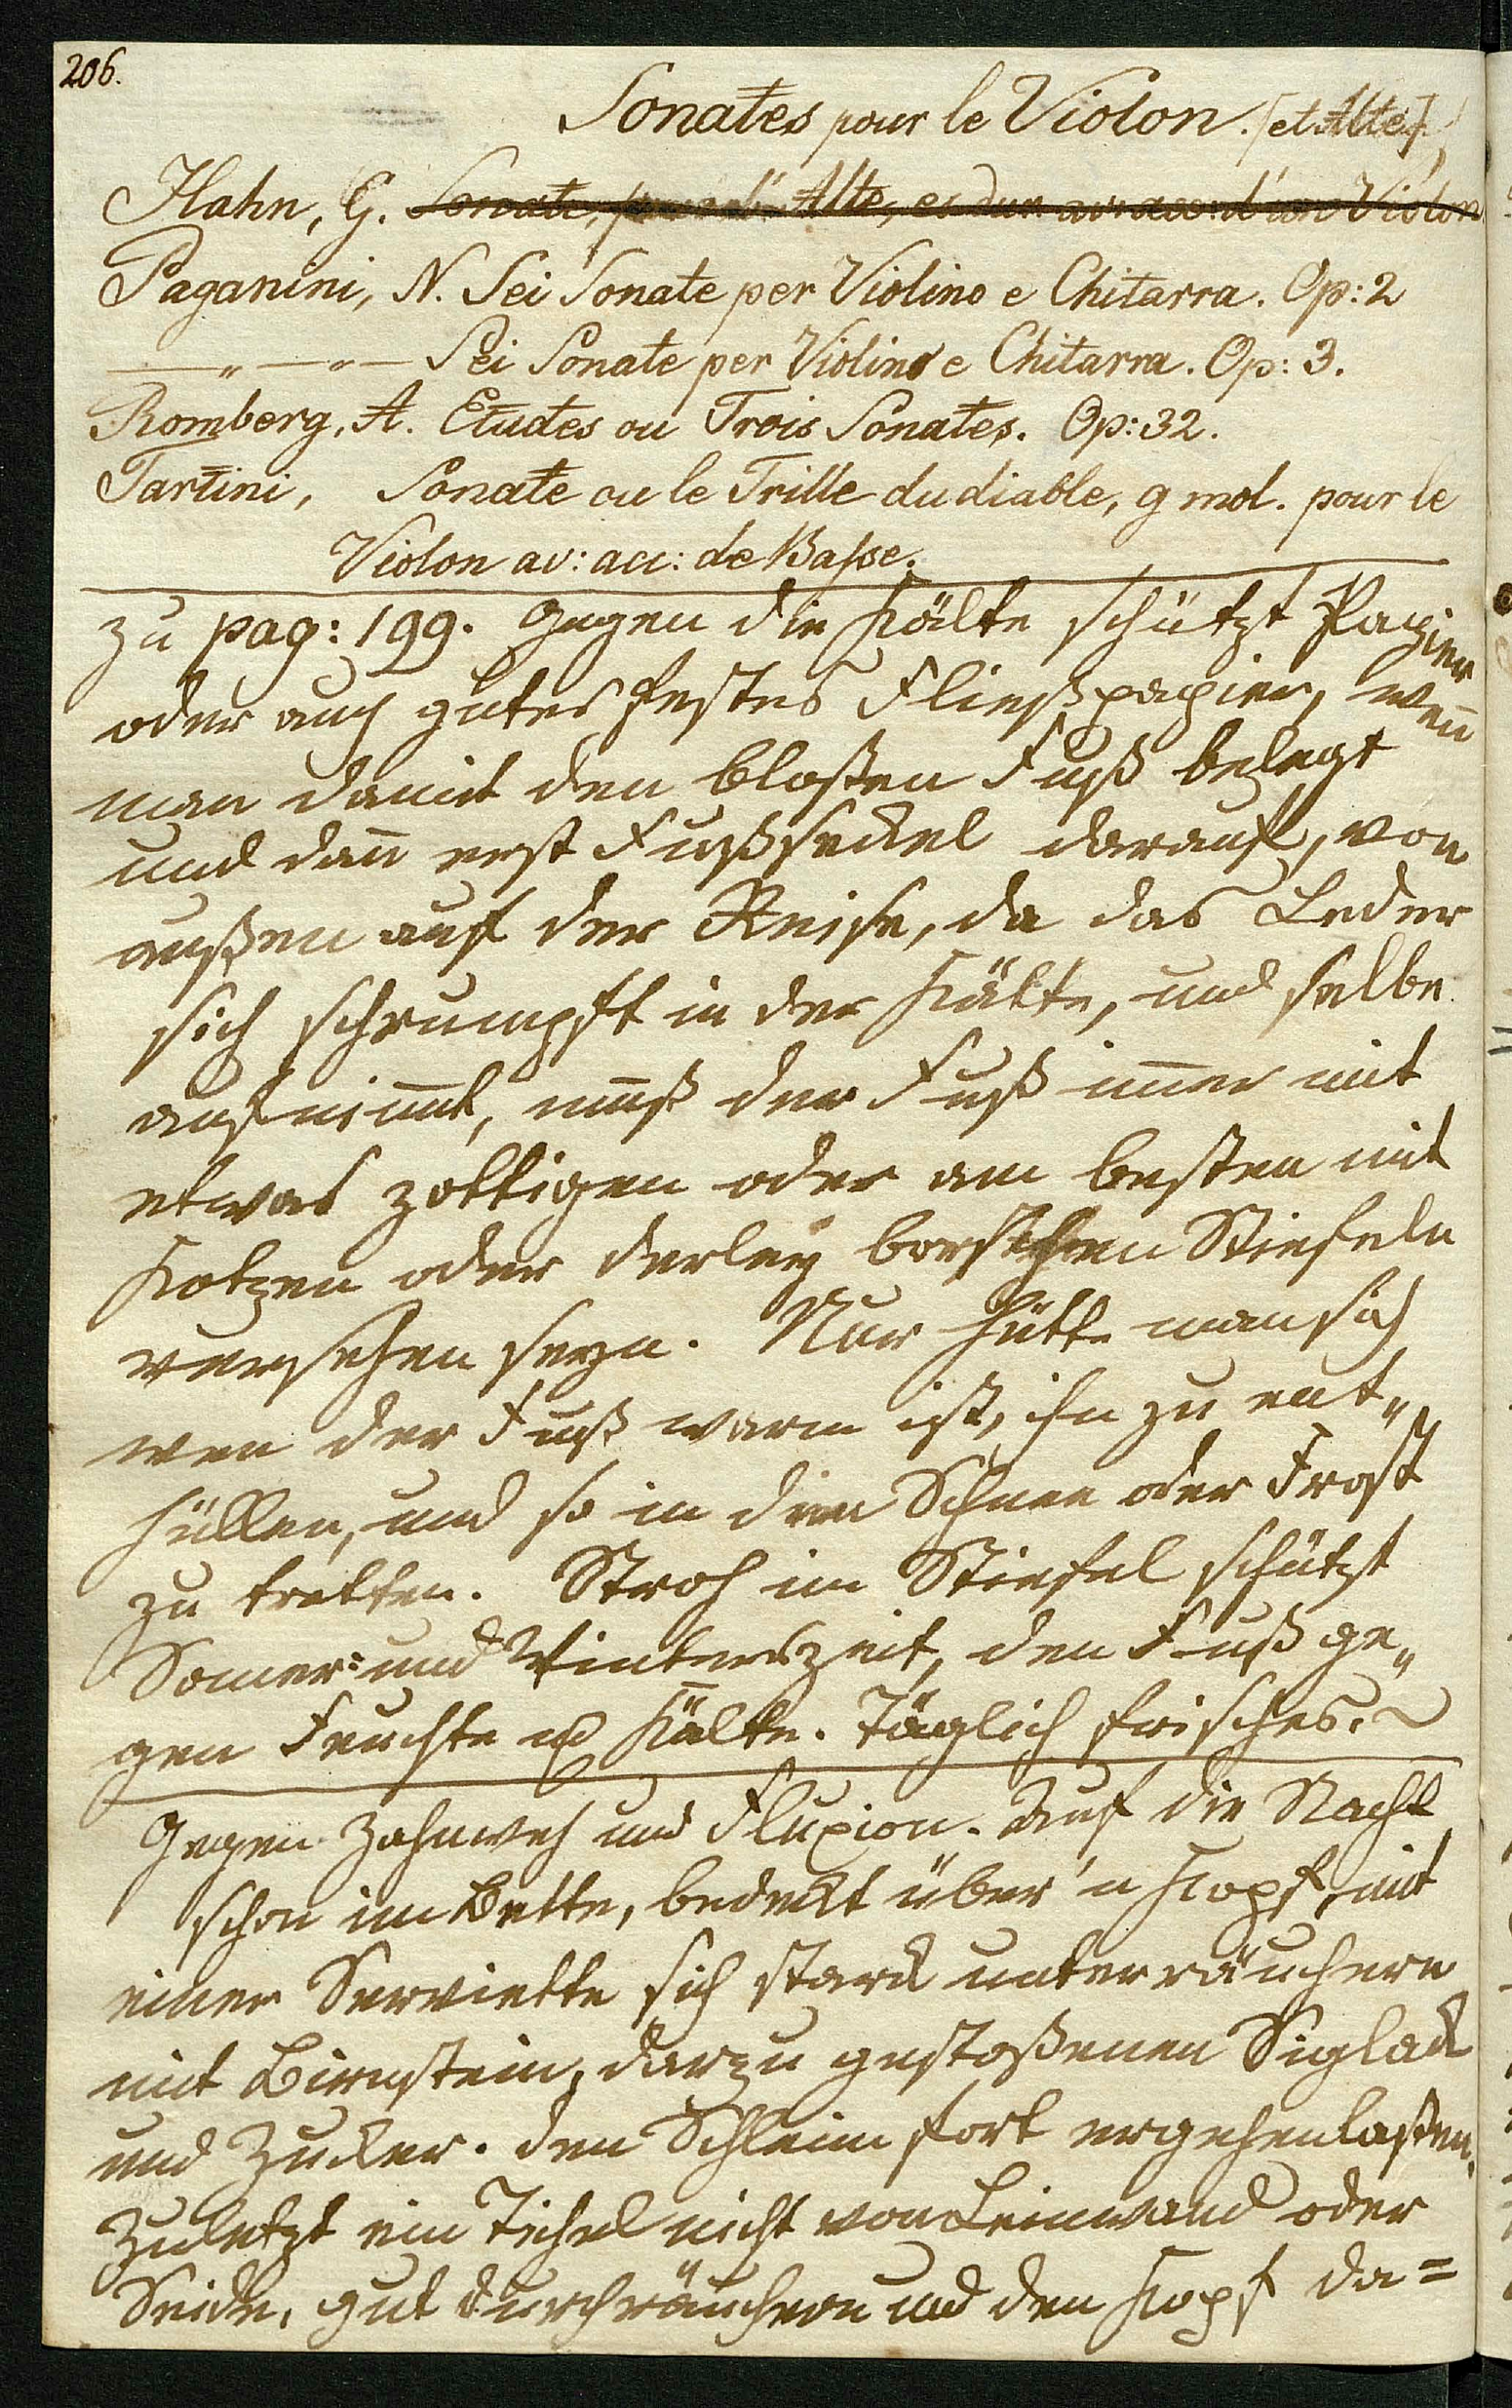 206.
Sonates pour le Violon. [et Alte]
Hahn, G. Sonate, pour l' Alte, es dur av: acc: d'un Violon
Paganini, N. Sei Sonate per Violino e Chitarra. Op: 2
—„—„— Sei Sonate per Violino e Chitarra. Op: 3.
Romberg, A. Etudes ou Trois Sonates. Op: 32.
Tartini, Sonate ou le Trille du diable, g mol. pour le
Violon av: acc: de Basse.
Zu pag: 199. Gegen die Kälte schützt Papier
oder auch gutes festes Fließpapier, wen̄
man damit den bloßen Fuß belegt
und dan̄ erst Fußsockel darauf, von
außen auf der Reise, da das Leder
sich schrumpft in der Kälte, und selbe
aufnim̄t, muß der Fuß im̄er mit
etwas zottigen oder am besten mit
Kotzen oder derley Stiefeln
versehen seyn. Nur hütte man sich
wen der Fuß warm ist, ihn zu ent„
hüllen, und so in den Schnee oder Frost
zu tretten. Stroh im Stiefel schützt
Som̄er= und Winterszeit, den Fuß ge„
gen Feuchte u Kälte. Täglich frisches.
Gegen Zahnweh und Fluxion. Auf die Nacht
schon im Bette, bedeckt über'n Kopf, mit
einer Serviette sich stark unterräuchern
mit Birnstein, darzu gestoßenen Siglack
und Zucker. den Schleim fort ergehen laßen.
Zuletzt ein Tichel nicht von Leinwand oder
Seide, gut durchräuchern und den Kopf da=